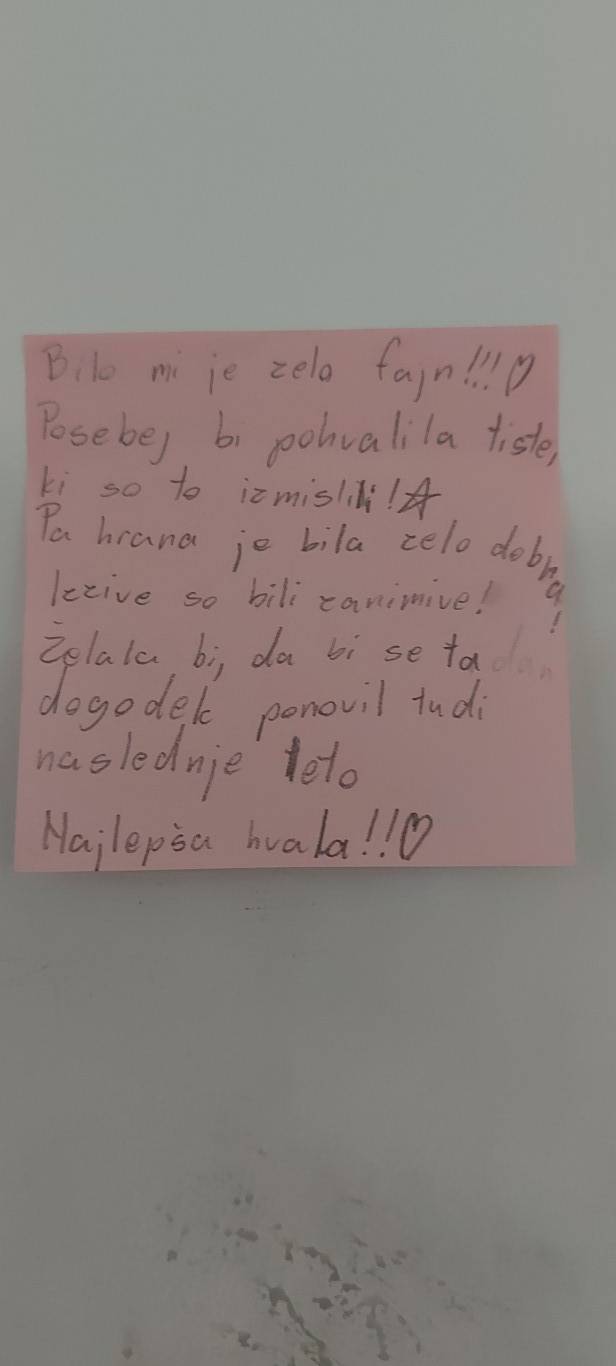 Bilo mi je zelo fajn!!!♡
Posebej bi pohvalila tiste,
ki so to izmislili!☆
Pa hrana je bila zelo dobra!
Izzive so bili zanimive!
Želala bi, da bi se ta dan
dogodek ponovil tudi
naslednje leto
Najlepša hvala!!♡